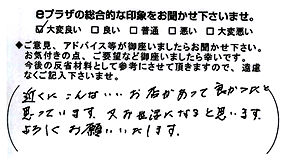 eプラザの総合的な印象をお聞かせ下さいませ。
☑大変良い □良い □普通 □悪い □大変悪い
◆ご意見、アドバイス等が御座いましたらお聞かせ下さい。
お気付きの点、ご要望など御座いましたら幸いです。
今後の反省材料として参考にさせて頂きますので、遠慮
なくご記入下さいませ。
近くにこんないいお店があって良かったと
思っています。又お世話になると思います。
よろしくお願いいたします。